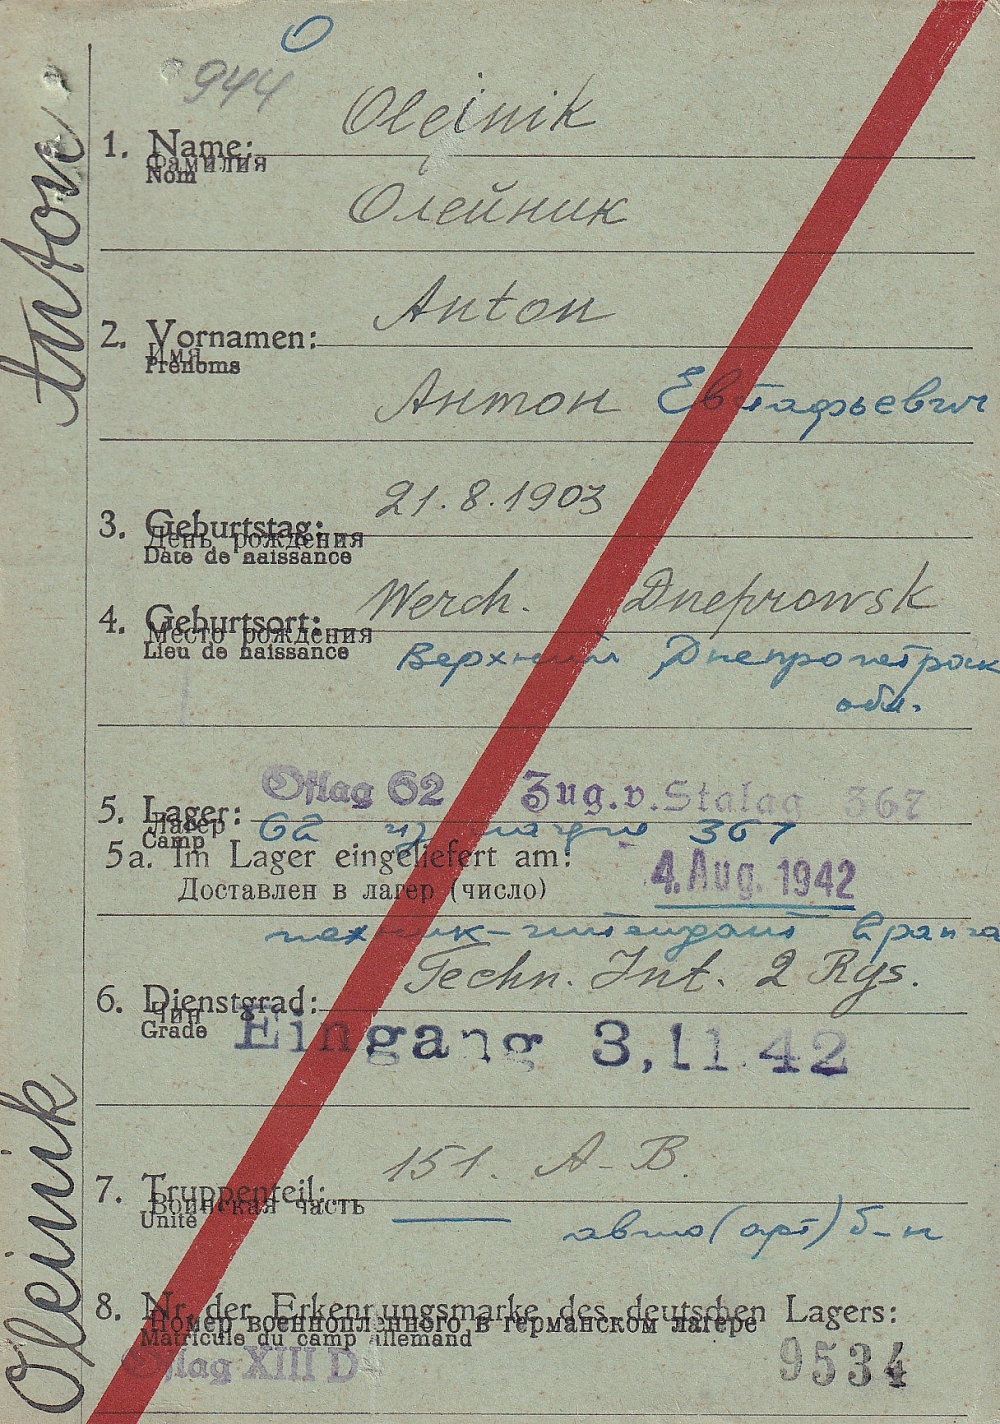 944
Oleinik
1. Name:
Фамилия
Nom
Олейник
Anton
2. Vornamen:
Имя
Prénoms
Антон Евтафьевич
21.8.1903
3. Geburtstag:
День рождения
Date de naissance
Werch. Dneprowsk
4. Geburtsort:
Место рождения
Lieu de naissance
Верхний Днепропетровск
обл.
Oflag 62 Zug.v.Stalag 367
5. Lager:
Лагерь
Camp
62 из 367
5a. Im Lager eingeliefert am:
Доставлен в лагер (число)
4. Aug. 1942
техник-интендант 2 ранга
Techn. Int. 2 Rgs.
6. Dienstgrad:
Чин
Grade
Eingang 3.11.42
151. A-B.
7. Truppenteil:
Воинская часть
Unité
авто(арт) б-н
8. Nr. der Erkennungsmarke des deutschen Lagers:
Номер военнопленного в германском лагере
Matricule du camp allemand
Oflag XIII D
9534
Oleinik Anton